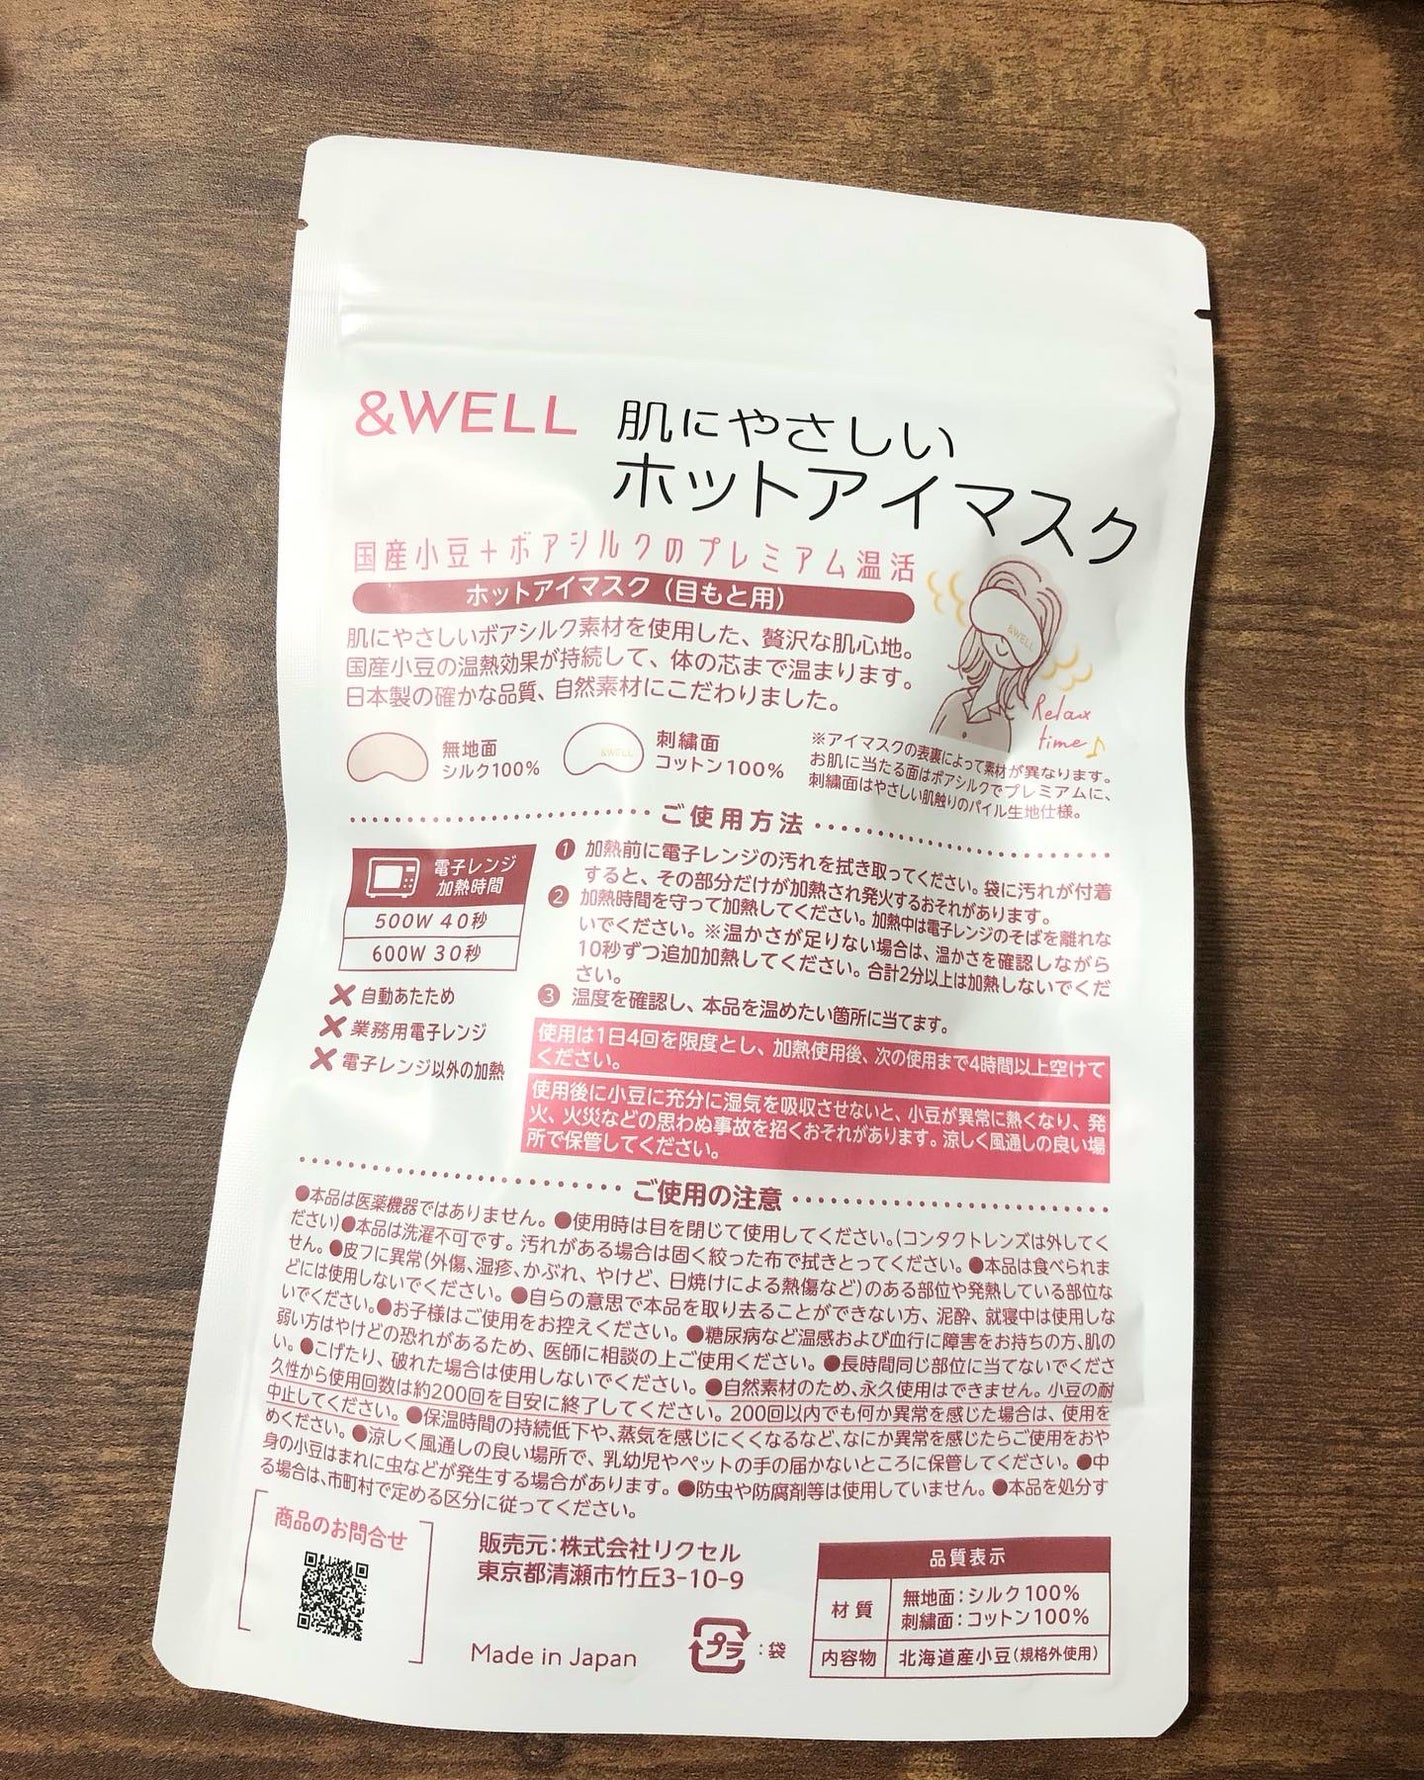 &WELL 肌にやさしい
ホットアイマスク
国産小豆+ボアシルクのプレミアム温活
ホットアイマスク(目もと用)
肌にやさしいボアシルク素材を使用した、贅沢な肌心地。
国産小豆の温熱効果が持続して、体の芯まで温まります。
日本製の確かな品質、自然素材にこだわりました。
&WELL
Relax
time♪
無地面
シルク100%
&WELL
刺繍面
コットン100%
※アイマスクの表裏によって素材が異なります。
お肌に当たる面はボアシルクでプレミアムに、
刺繍面はやさしい肌触りのパイル生地仕様。
ご使用方法
電子レンジ
加熱時間
500W 40秒
600W 30秒
✕ 自動あたため
✕ 業務用電子レンジ
✕ 電子レンジ以外の加熱
❶ 加熱前に電子レンジの汚れを拭き取ってください。袋に汚れが付着
すると、その部分だけが加熱され発火するおそれがあります。
❷ 加熱時間を守って加熱してください。加熱中は電子レンジのそばを離れな
いでください。※温かさが足りない場合は、温かさを確認しながら
10秒ずつ追加加熱してください。合計2分以上は加熱しないでくだ
さい。
❸ 温度を確認し、本品を温めたい箇所に当てます。
使用は1日4回を限度とし、加熱使用後、次の使用まで4時間以上空けて
ください。
使用後に小豆に充分に湿気を吸収させないと、小豆が異常に熱くなり、発
火、火災などの思わぬ事故を招くおそれがあります。涼しく風通しの良い場
所で保管してください。
ご使用の注意
●本品は医薬機器ではありません。●使用時は目を閉じて使用してください。(コンタクトレンズは外してく
ださい)●本品は洗濯不可です。汚れがある場合は固く絞った布で拭きとってください。●本品は食べられま
せん。●皮フに異常(外傷、湿疹、かぶれ、やけど、日焼けによる熱傷など)のある部位や発熱している部位な
どには使用しないでください。●自らの意思で本品を取り去ることができない方、泥酔、就寝中は使用しな
いでください。●お子様はご使用をお控えください。●糖尿病など温感および血行に障害をお持ちの方、肌の
弱い方はやけどの恐れがあるため、医師に相談の上ご使用ください。●長時間同じ部位に当てないでくださ
い。●こげたり、破れた場合は使用しないでください。●自然素材のため、永久使用はできません。小豆の耐
久性から使用回数は約200回を目安に終了してください。200回以内でも何か異常を感じた場合は、使用を
中止してください。●保温時間の持続低下や、蒸気を感じにくくなるなど、なにか異常を感じたらご使用をおや
めください。●涼しく風通しの良い場所で、乳幼児やペットの手の届かないところに保管してください。●中
身の小豆はまれに虫などが発生する場合があります。●防虫や防腐剤等は使用していません。●本品を処分す
る場合は、市町村で定める区分に従ってください。
商品のお問合せ
販売元:株式会社リクセル
東京都清瀬市竹丘3-10-9
Made in Japan
プラ :袋
品質表示
材質
無地面:シルク100%
刺繍面:コットン100%
内容物 北海道産小豆(規格外使用)